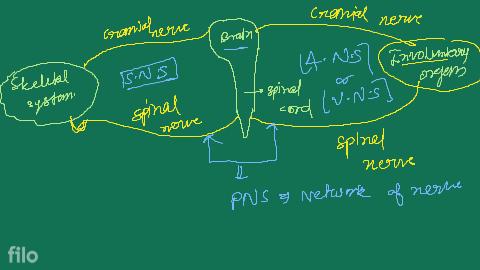 cranial nerve
Brain
cranial nerve
Skeletal
system
S.N.S
A.N.S
or
V.N.S
Involuntary
organs
spinal
cord
spinal
nerve
spinal
nerve
PNS ⇒ Network of nerve
filo